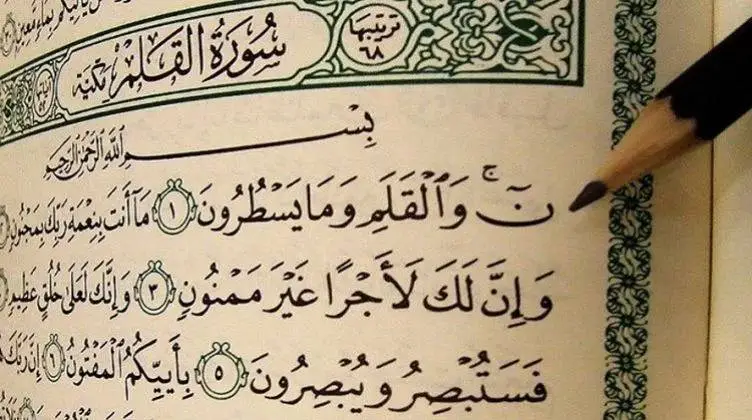 سُورَةُ القَلَمِ مَكِّيَّة ترتيبها ٦٨
بِسْمِ اللَّهِ الرَّحْمَٰنِ الرَّحِيمِ
نٓ ۚ وَٱلْقَلَمِ وَمَا يَسْطُرُونَ ١ مَآ أَنتَ بِنِعْمَةِ رَبِّكَ بِمَجْنُونٍ
وَإِنَّ لَكَ لَأَجْرًا غَيْرَ مَمْنُونٍ ٣ وَإِنَّكَ لَعَلَىٰ خُلُقٍ عَظِيمٍ
فَسَتُبْصِرُ وَيُبْصِرُونَ ٥ بِأَييِّكُمُ ٱلْمَفْتُونُ ٦ إِنَّ رَبَّكَ